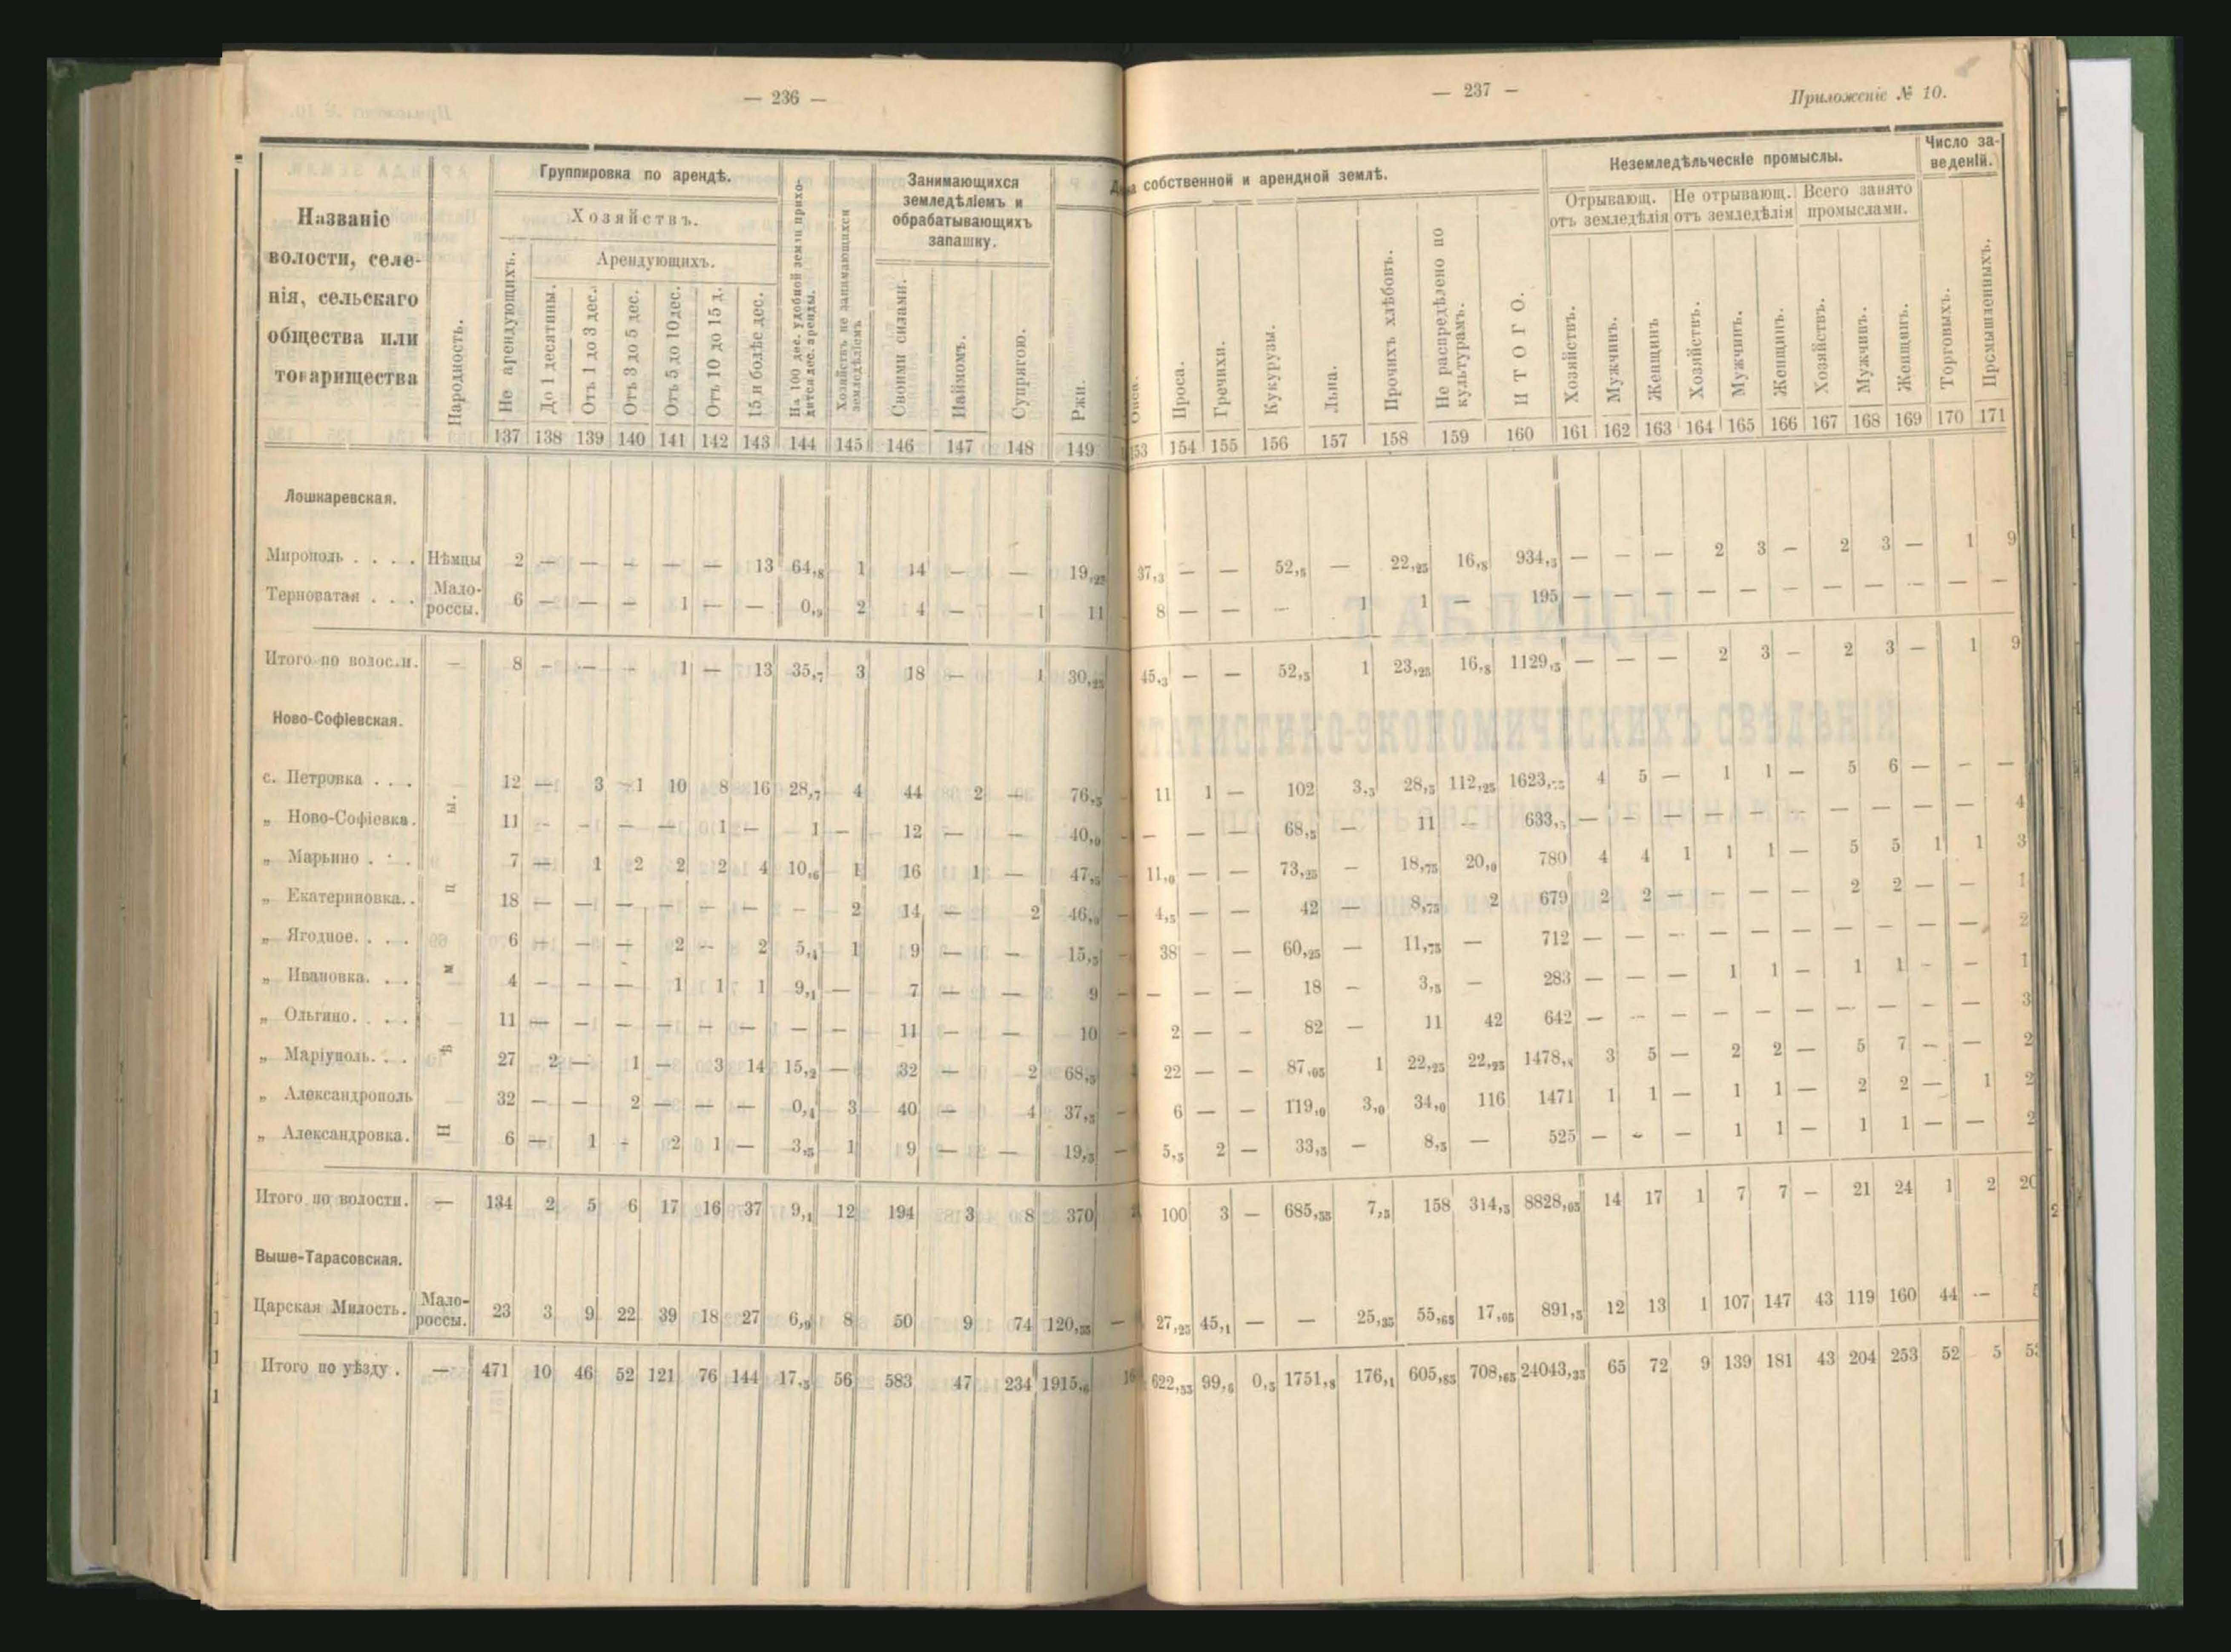 — 236 —
Группировка по арендѣ.
Хозяйствъ.
Арендующихъ.
Названіе
волости, селе-
нія, сельскаго
общества или
товарищества
Народность.
Не арендующихъ.
До 1 десятины.
Отъ 1 до 3 дес.
Отъ 3 до 5 дес.
Отъ 5 до 10 дес.
Отъ 10 до 15 д.
15 и болѣе дес.
На 100 дес. удобной земли прихо-
дится дес. аренды.
Хозяйствъ не занимающихся
земледѣліемъ
Занимающихся
земледѣліемъ и
обрабатывающихъ
запашку.
Своими силами.
Наймомъ.
Супрягою.
Ржи.
137 138 139 140 141 142 143 144 145 146 147 148 149
Лошкаревская.
Мирополь . . . . Нѣмцы 2 — — — — — 13 64,8 1 14 — — 19,25
Терноватая . . . Мало-
россы. 6 — — — 1 — — 0,9 2 4 — 1 11
Итого по волости. — 8 — — — 1 — 13 35,7 3 18 — 1 30,25
Ново-Софіевская.
Нѣмцы.
с. Петровка . . . 12 — 3 1 10 8 16 28,7 4 44 2 — 76,5
„ Ново-Софіевка. 11 — — — — 1 — 1 — 12 — — 40,0
„ Марьино . . . 7 — 1 2 2 2 4 10,6 1 16 1 — 47,5
„ Екатериновка. . 18 — — — — — — — 2 14 — 2 46
„ Ягодное. . . . 6 — — — 2 — 2 5,4 1 9 — — 15,5
„ Ивановка. . . 4 — — — 1 1 1 9,1 — 7 — — 9
„ Ольгино. . . . 11 — — — — — — — — 11 — — 10
„ Маріуполь. . . 27 2 — 1 — 3 14 15,2 — 32 — 2 68,5
„ Александрополь 32 — — 2 — — — 0,4 3 40 — 4 37,5
„ Александровка. 6 — 1 — 2 1 — 3,5 1 9 — — 19,5
Итого по волости. — 134 2 5 6 17 16 37 9,4 12 194 3 8 370
Выше-Тарасовская.
Царская Милость. Мало-
россы. 23 3 9 22 39 18 27 6,9 8 50 9 74 120,55
Итого по уѣзду . — 471 10 46 52 121 76 144 17,5 56 583 47 234 1915,6
— 237 —
Приложеніе № 10.
на собственной и арендной землѣ.
Неземледѣльческіе промыслы.
Число за-
веденій.
Отрывающ.
отъ земледѣлія
Не отрывающ.
отъ земледѣлія
Всего занято
промыслами.
Овса.
Проса.
Гречихи.
Кукурузы.
Льна.
Прочихъ хлѣбовъ.
Не распредѣлено по
культурамъ.
ИТОГО.
Хозяйствъ.
Мужчинъ.
Женщинъ
Хозяйствъ.
Мужчинъ.
Женщинъ.
Хозяйствъ.
Мужчинъ.
Женщинъ.
Торговыхъ.
Промышленныхъ.
153 154 155 156 157 158 159 160 161 162 163 164 165 166 167 168 169 170 171
37,3 — — 52,5 — 22,25 16,8 934,3 — — — 2 3 — 2 3 — 1 9
8 — — — 1 1 — 195 — — — — — — — — — — —
45,3 — — 52,5 1 23,25 16,8 1129,3 — — — 2 3 — 2 3 — 1 9
11 1 — 102 3,5 28,5 112,25 1623,75 4 5 — 1 1 — 5 6 — — —
— — — 68,5 — 11 — 633,5 — — — — — — — — — — 4
11,0 — — 73,25 — 18,75 20,0 780 4 4 1 1 1 — 5 5 1 1 3
4,5 — — 42 — 8,75 2 679 2 2 — — — — 2 2 — — 1
38 — — 60,25 — 11,75 — 712 — — — — — — — — — — 2
— — — 18 — 3,5 — 283 — — — 1 1 — 1 1 — — 1
2 — — 82 — 11 42 642 — — — — — — — — — — 3
22 — — 87,05 1 22,25 22,25 1478,8 3 5 — 2 2 — 5 7 — — 2
6 — — 119,0 3,0 34,0 116 1471 1 1 — 1 1 — 2 2 — 1 2
5,5 2 — 33,5 — 8,5 — 525 — — — 1 1 — 1 1 — — 2
100 3 — 685,55 7,5 158 314,5 8828,05 14 17 1 7 7 — 21 24 1 2 20
27,25 45,1 — — 25,35 55,65 17,05 891,5 12 13 1 107 147 43 119 160 44 —
622,55 99,6 0,5 1751,8 176,1 605,85 708,65 24043,35 65 72 9 139 181 43 204 253 52 5